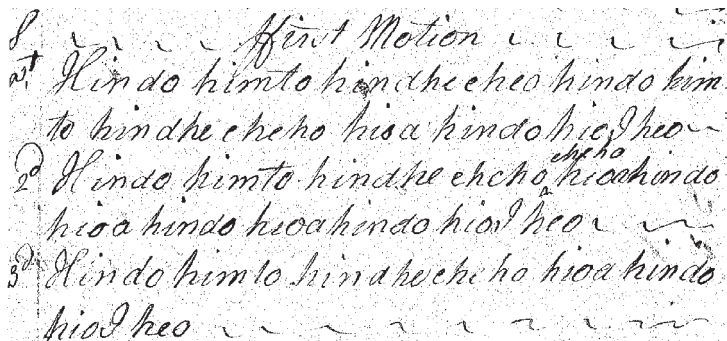 8 First Motion
1st Hindo himto hindhe eheo hindo him
to hindhe eheho hioa hindo hioJ heo
2d Hindo himto hindhe eheho eheho hioa hindo
hioa hindo hioa hindo hioJ heo
3d Hindo himto hindhe eheho hioa hindo
hioJ heo